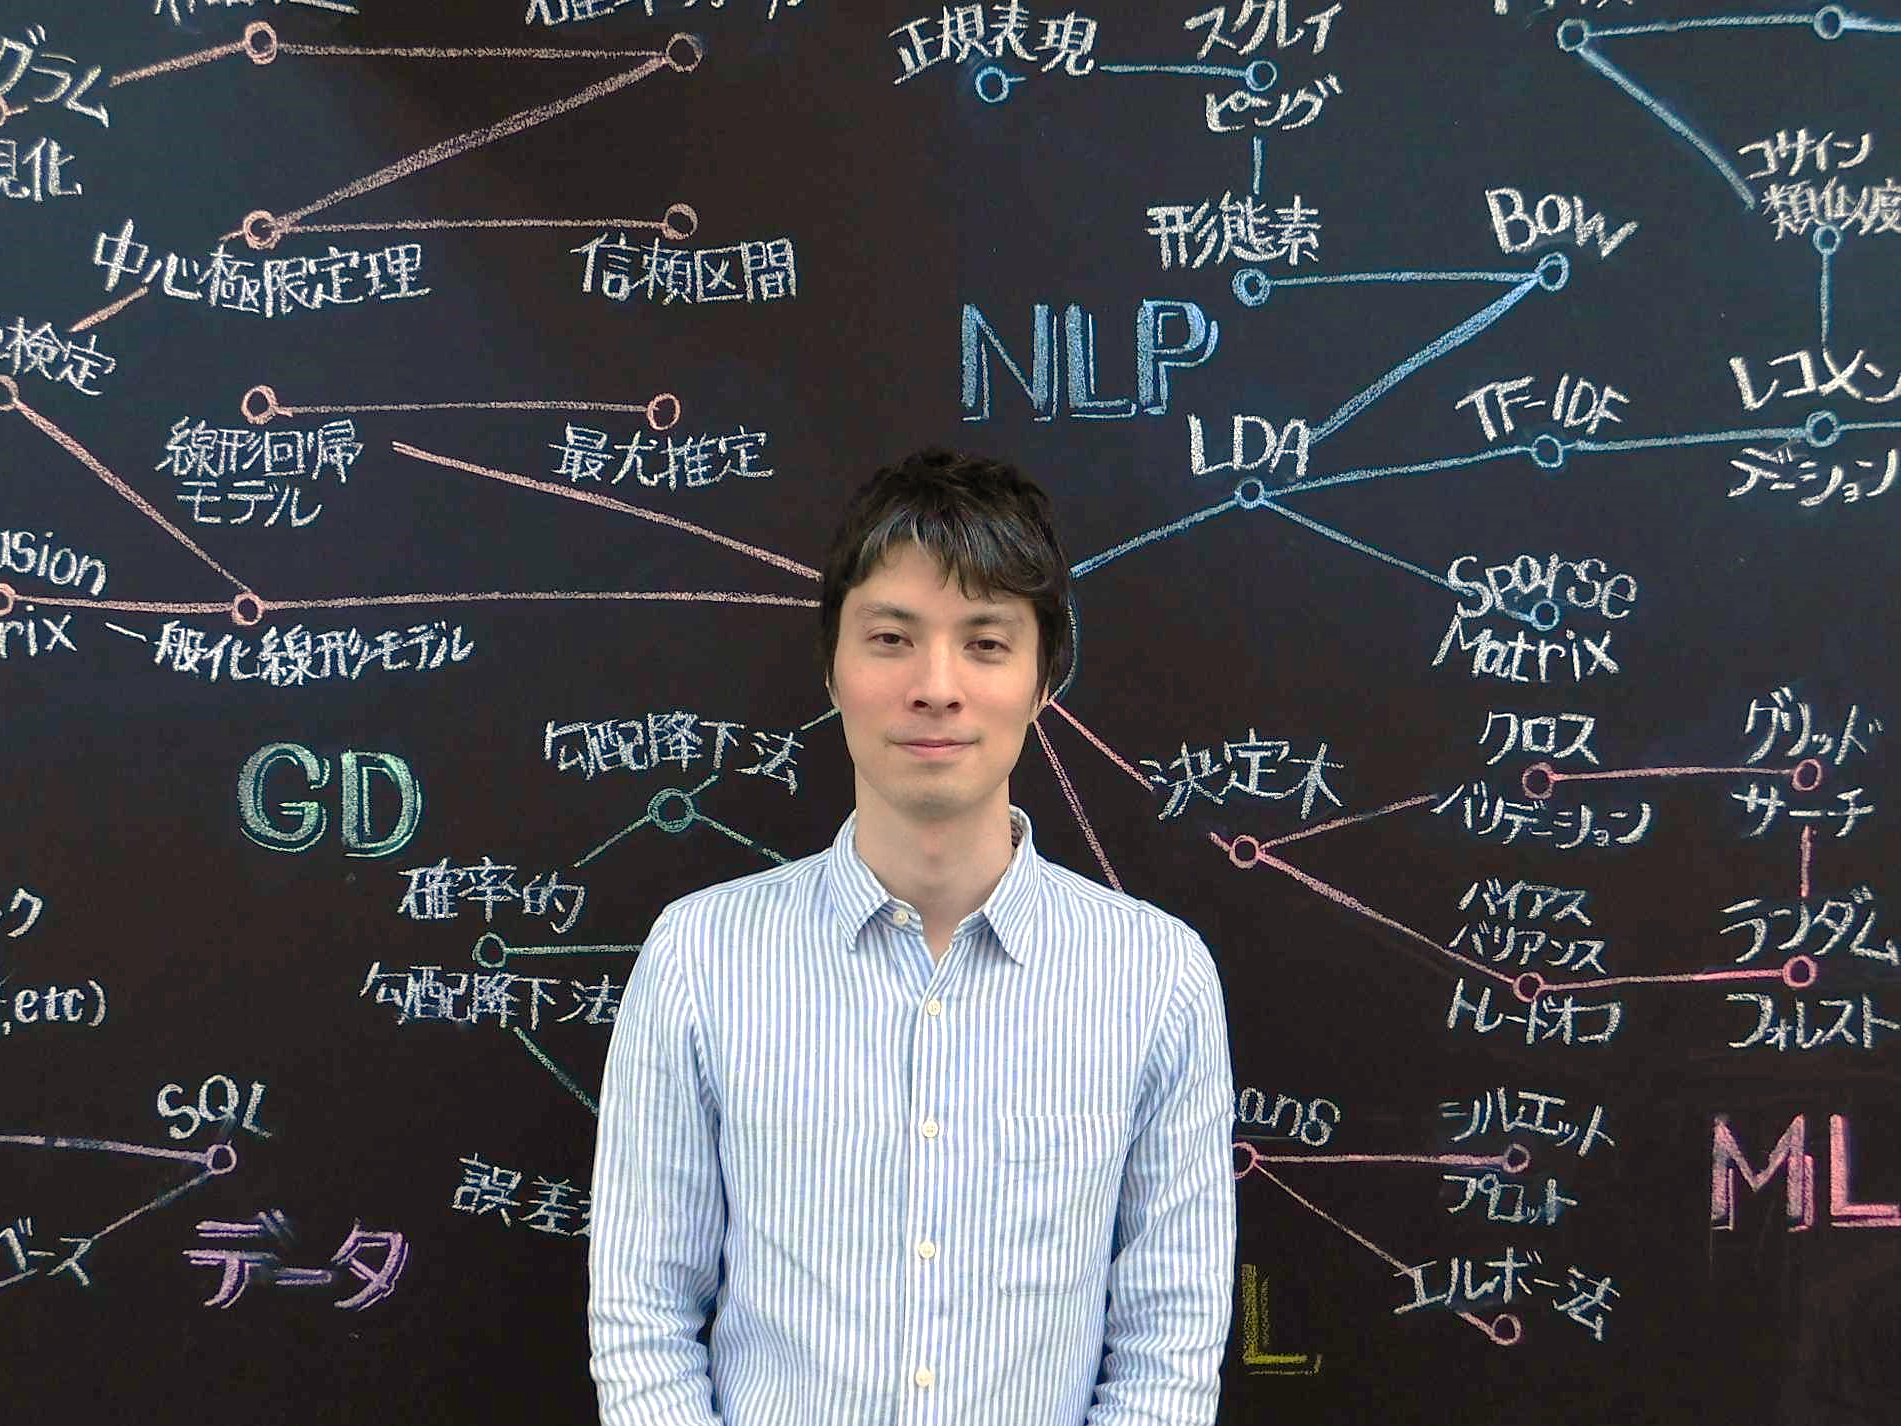 正規表現
スクレイ
ピング
グラム
視化
コサイン
類似度
形態素
BOW
中心極限定理
信頼区間
NLP
検定
レコメン
デーション
TF-IDF
LDA
線形回帰
モデル
最尤推定
usion
rix
Sparse
Matrix
一般化線形モデル
勾配降下法
GD
決定木
クロス
バリデーション
グリッド
サーチ
確率的
勾配降下法
バイアス
バリアンス
トレードオフ
ランダム
フォレスト
ク
,etc)
SQL
ans
シルエット
プロット
ML
誤差
ベース
データ
エルボー法
L